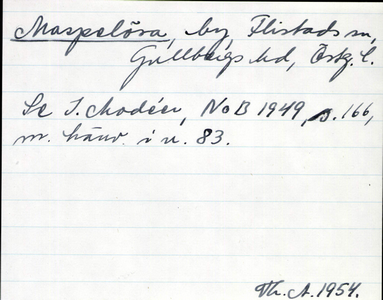 Maspelösa, by, Flistads sn,
Gullbergs hd, Östg. l.
Se I. Modéer, NoB 1949, s. 166,
m. hänv. i n. 83.
Th. A. 1954.